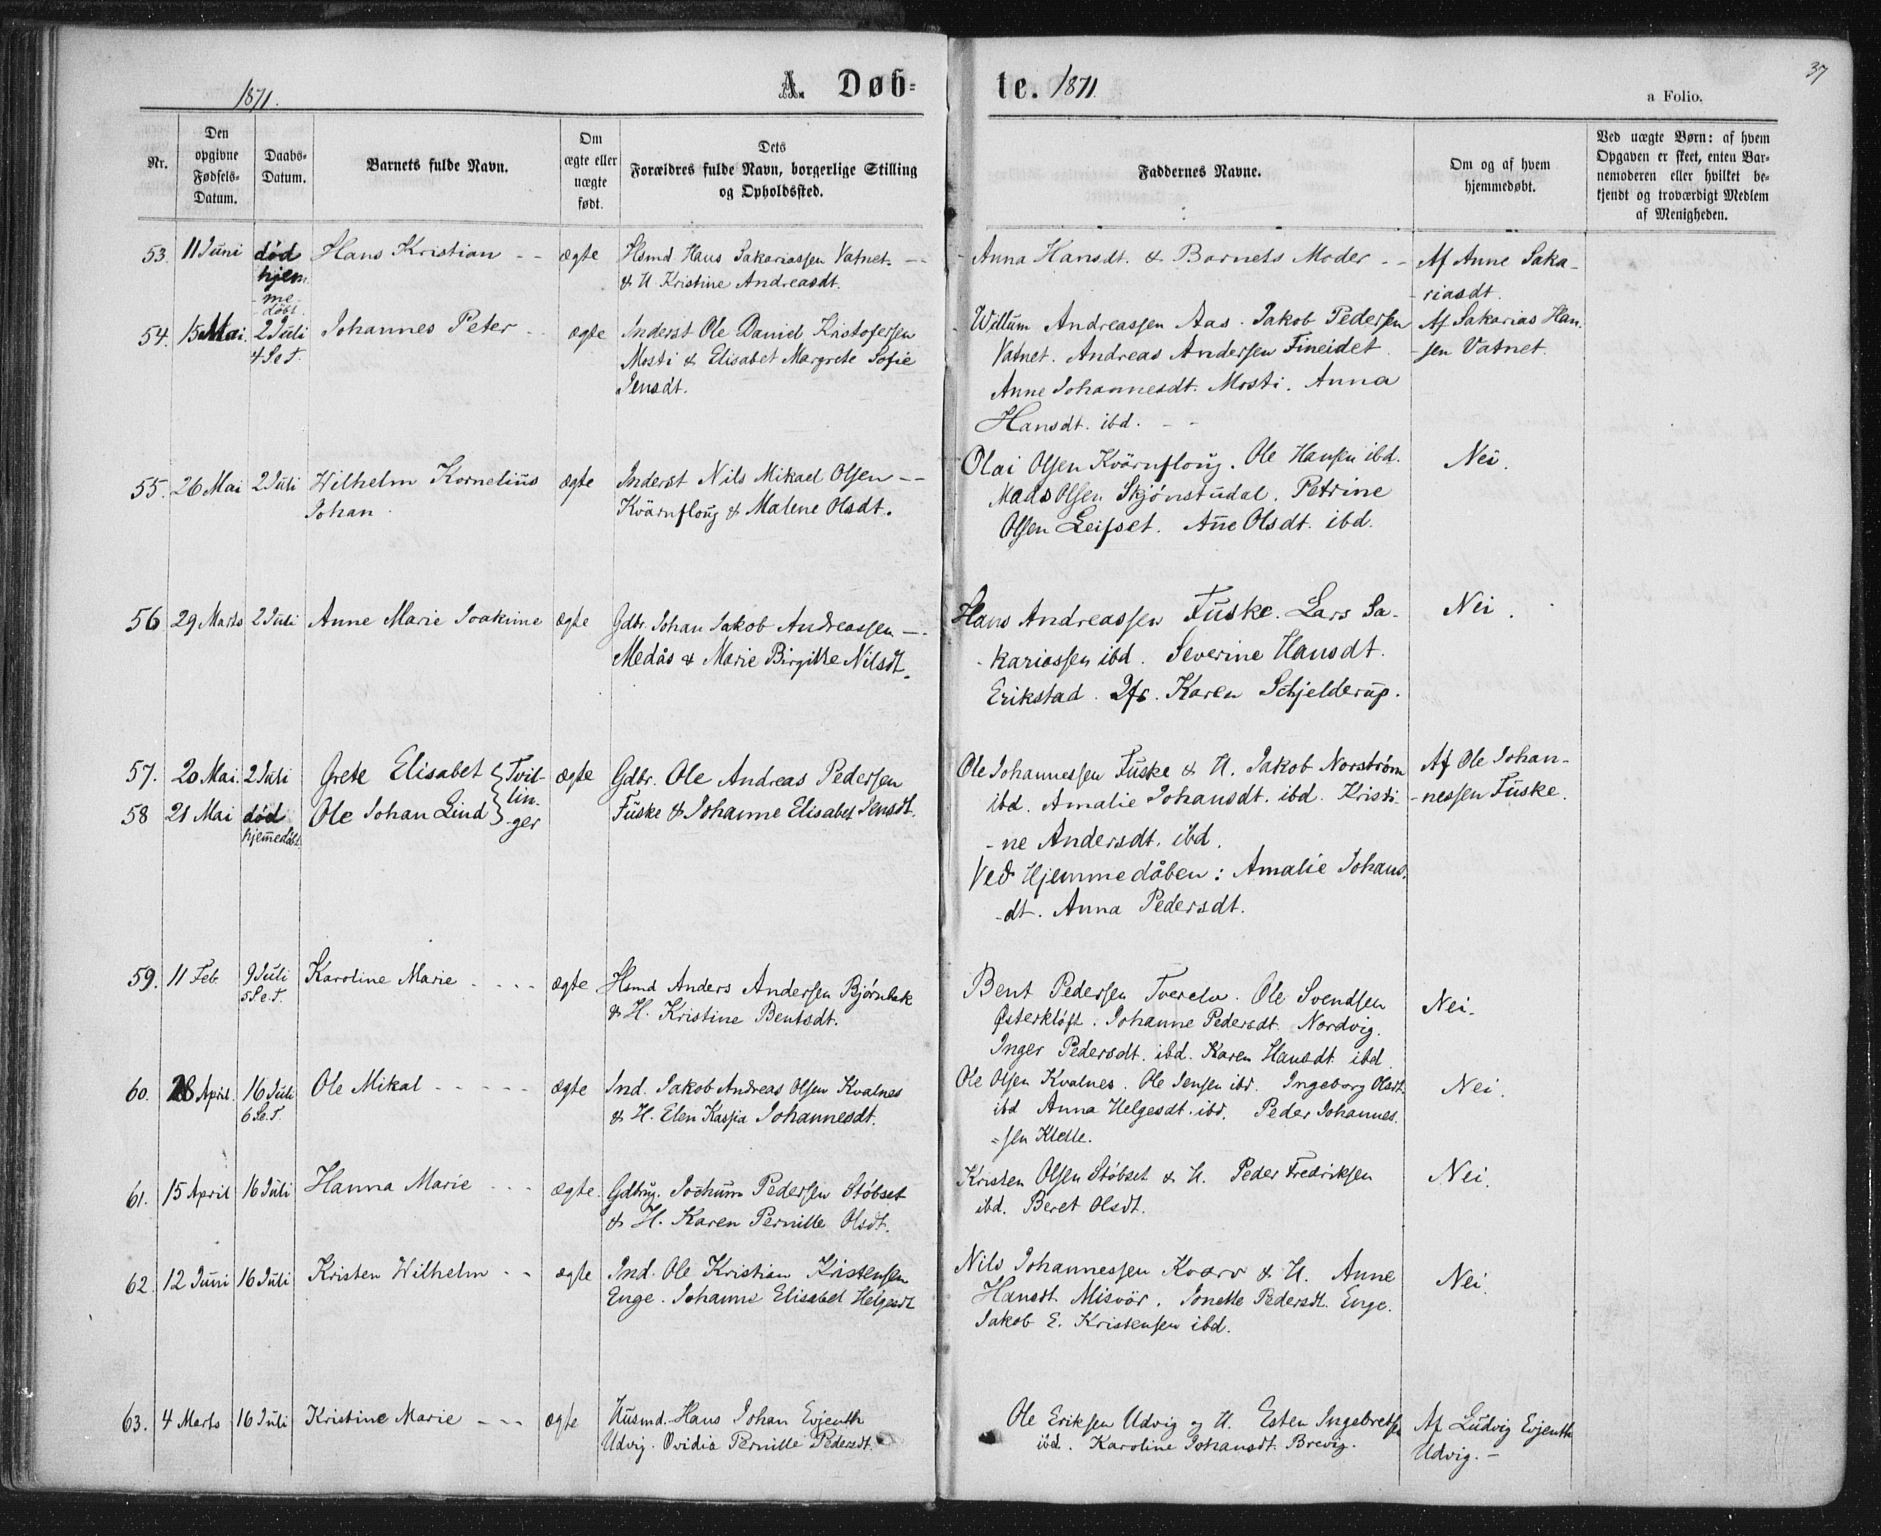 1871. A. Døb-
te. 1871. 37
a Folio.
Nr.
Den
opgivne
Fødsels-
Datum.
Daabs-
Datum.
Barnets fulde Navn.
Om
ægte eller
uægte
født.
Dets
Forældres fulde Navn, borgerlige Stilling
og Opholdssted.
Faddernes Navne.
Om og af hvem
hjemmedøbt.
Ved uægte Børn: af hvem
Opgaven er skeet, enten Bar-
nemoderen eller hvilket be-
kjendt og troværdigt Medlem
af Menigheden.
53. 11 Juni død Hans Kristian - - ægte Hsmd. Hans Sakariassen Vatnet. - -
hjem- & H Kristine Andreasdt.
me-
døbt.
Anna Hansdt. & Barnets Moder - - Af Anne Saka-
riasdt.
54. 15 Mai. 2 Juli Johannes Peter - ægte Inderst Ole Daniel Kristofersen
4 S e T Mosti & Elisabet Margrete Sofie
Jensdt.
Willum Andreassen Aas. Jakob Pedersen Af Sakarias Han-
Vatnet. Andreas Andersen Fineidet. sen Vatnet.
Anne Johannesdt. Mosti. Anna
Hansdt. ibd. - -
55. 26 Mai 2 Juli Wilhelm Kornelius ægte Inderst Nils Mikael Olsen - -
Johan Kvärnfloug & Malene Olsdt.
Olai Olsen Kvärnfloug. Ole Hansen ibd. Nei.
Mads Olsen Skjønstudal. Petrine
Olsen Leifset. Añe Olsdt. ibd.
56 29 Marts 2 Juli Anne Marie Joakime ægte Gdbr. Johan Jakob Andreassen -.
Medås & Marie Birgitte Nilsdt.
Hans Andreassen Fuske. Lars Sa- Nei.
kariassen ibd. Severine Hansdt.
Erikstad. Jfr. Karen Schjelderup.
57. 20 Mai. 2 Juli Grete Elisabet Tvil- ægte Gdbr. Ole Andreas Pedersen
58 21 Mai død Ole Johan Lind lin- Fuske & Johanne Elisabet Jensdt.
hjem̄edøbt ger
Ole Johannessen Fuske & H. Jakob Norstrøm Af Ole Johan-
ibd. Amalie Johansdt. ibd. Kristi- nessen Fuske.
ne Andersdt. ibd.
Ved Hjemmedåben: Amalie Johans-
dt. Anna Pedersdt.
59. 11 Feb. 9 Juli Karoline Marie - - - - ægte Hsmd Anders Andersen Bjørnbak
5 S. e. T. & H. Kristine Bentsdt.
Bent Pedersen Tverelv. Ole Svendsen Nei.
Østerkløft. Johanne Pedersdt. Nordvig.
Inger Pedersdt. ibd. Karen Hansdt. ibd.
60. 28 April. 16 Juli Ole Mikal - - - - - ægte Ind. Jakob Andreas Olsen Kvalnes
6 S e. T. & H. Elen Kaspa Johannesdt.
Ole Olsen Kvalnes. Ole Jensen ibd. Ingeborg Olsdt. Nei.
ibd Anna Helgesdt. ibd. Peder Johannes-
sen Klette.
61. 15 April 16 Juli Hanna Marie - - - ægte. Gdbrug. Jochum Pedersen Støbset
& H. Karen Pernille Olsdt.
Kristen Olsen Støbset & H. Peder Fredriksen Nei.
ibd. Beret Olsdt.
62. 12 Juni 16 Juli Kristen Wilhelm - - ægte Ind. Ole Kristian Kristensen
Enge. Johanne Elisabet Helgesdt
Nils Johannessen Kvärv & H. Anne Nei.
Hansdt. Misvär. Jonette Pedersdt. Enge.
Jakob E. Kristensen ibd.
63. 4 Marts 16 Juli Kristine Marie - - - ægte Husmd. Hans Johan Evjenth
Udvig. Ovidia Pernille Pedersdt.
Ole Eriksen Udvig og H. Esten Ingebretsen Af Ludvig Evjenth
ibd. Karoline Johansdt. Brevig. Udvig. -